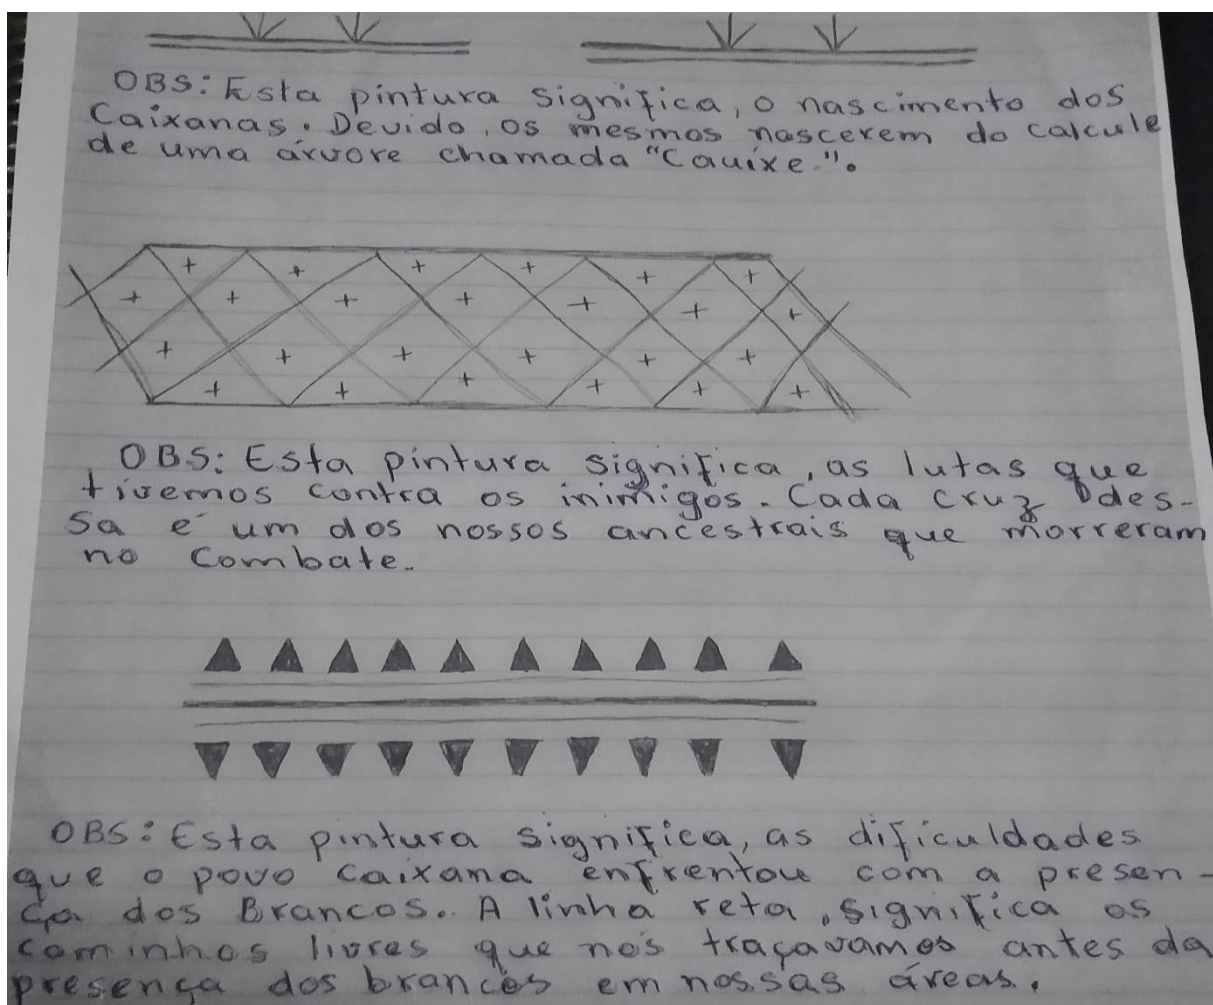 OBS: Esta pintura significa, o nascimento dos
Caixanas. Devido, os mesmos nascerem do calcule
de uma árvore chamada "Cauíxe.".
OBS: Esta pintura significa, as lutas que
tivemos contra os inimigos. Cada cruz des-
sa é um dos nossos ancestrais que morreram
no combate.
OBS: Esta pintura significa, as dificuldades
que o povo caixana enfrentou com a presen-
ça dos Brancos.. A linha reta, significa os
caminhos livres que nós traçavamos antes da
presença dos brancos em nossas áreas.